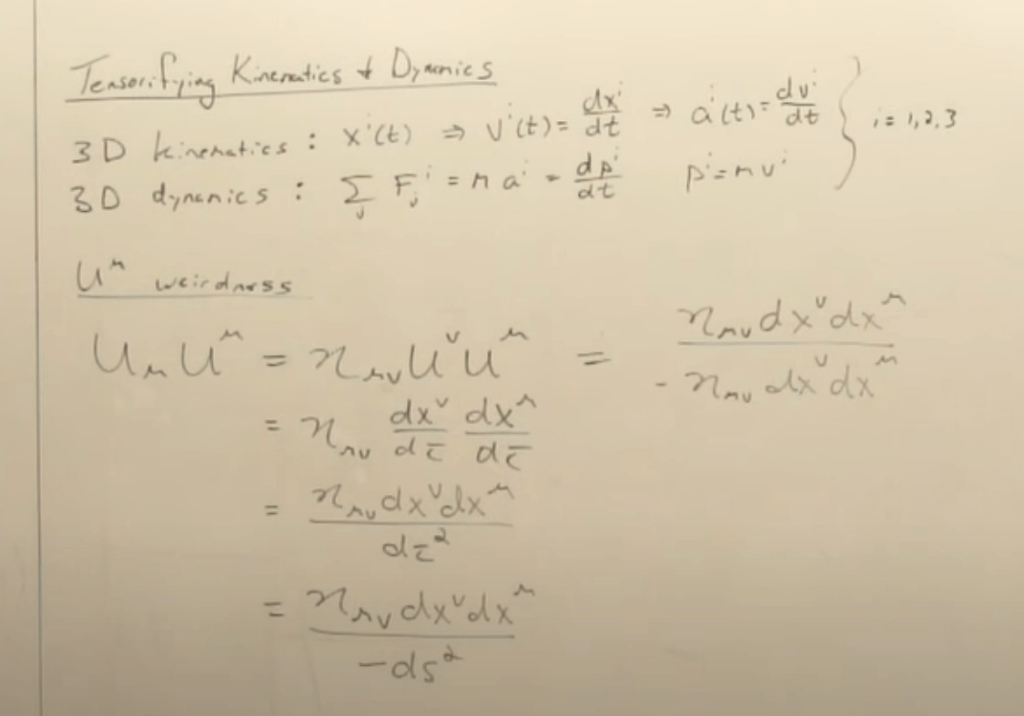 Tensorifying Kinematics & Dynamics
3D kinematics : xⁱ(t) ⇒ vⁱ(t) = dxⁱ/dt ⇒ aⁱ(t) = dvⁱ/dt } i = 1,2,3
3D dynamics : Σⱼ Fⱼⁱ = m aⁱ = dpⁱ/dt pⁱ = m vⁱ
U^μ weirdness
U_μ U^μ = η_μν U^ν U^μ = η_μν dx^ν dx^μ / -η_μν dx^ν dx^μ
= η_μν dx^ν/dτ dx^μ/dτ
= η_μν dx^ν dx^μ / dτ²
= η_μν dx^ν dx^μ / -ds²